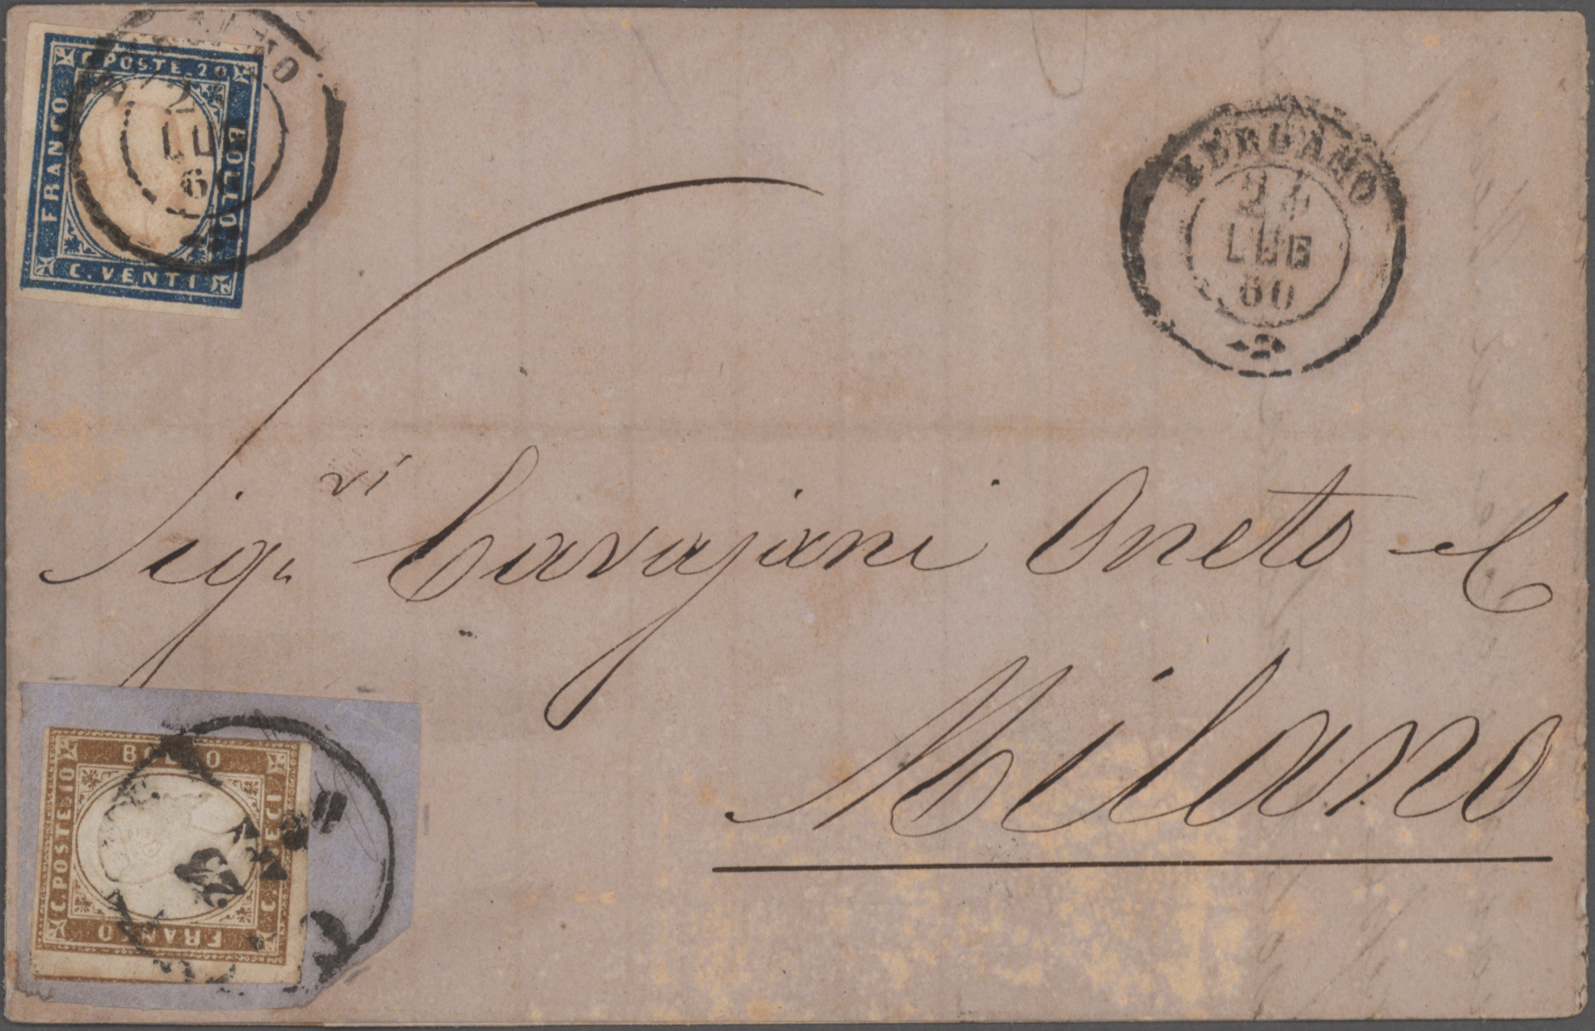 C. POSTE. 20
FRANCO
BOLLO
C. VENTI
LU
BERGAMO
24
LUG
60
Sig.ri Cavajani Oneto e C
Milano
BOLLO
C. POSTE 10
C. DIECI
FRANCO